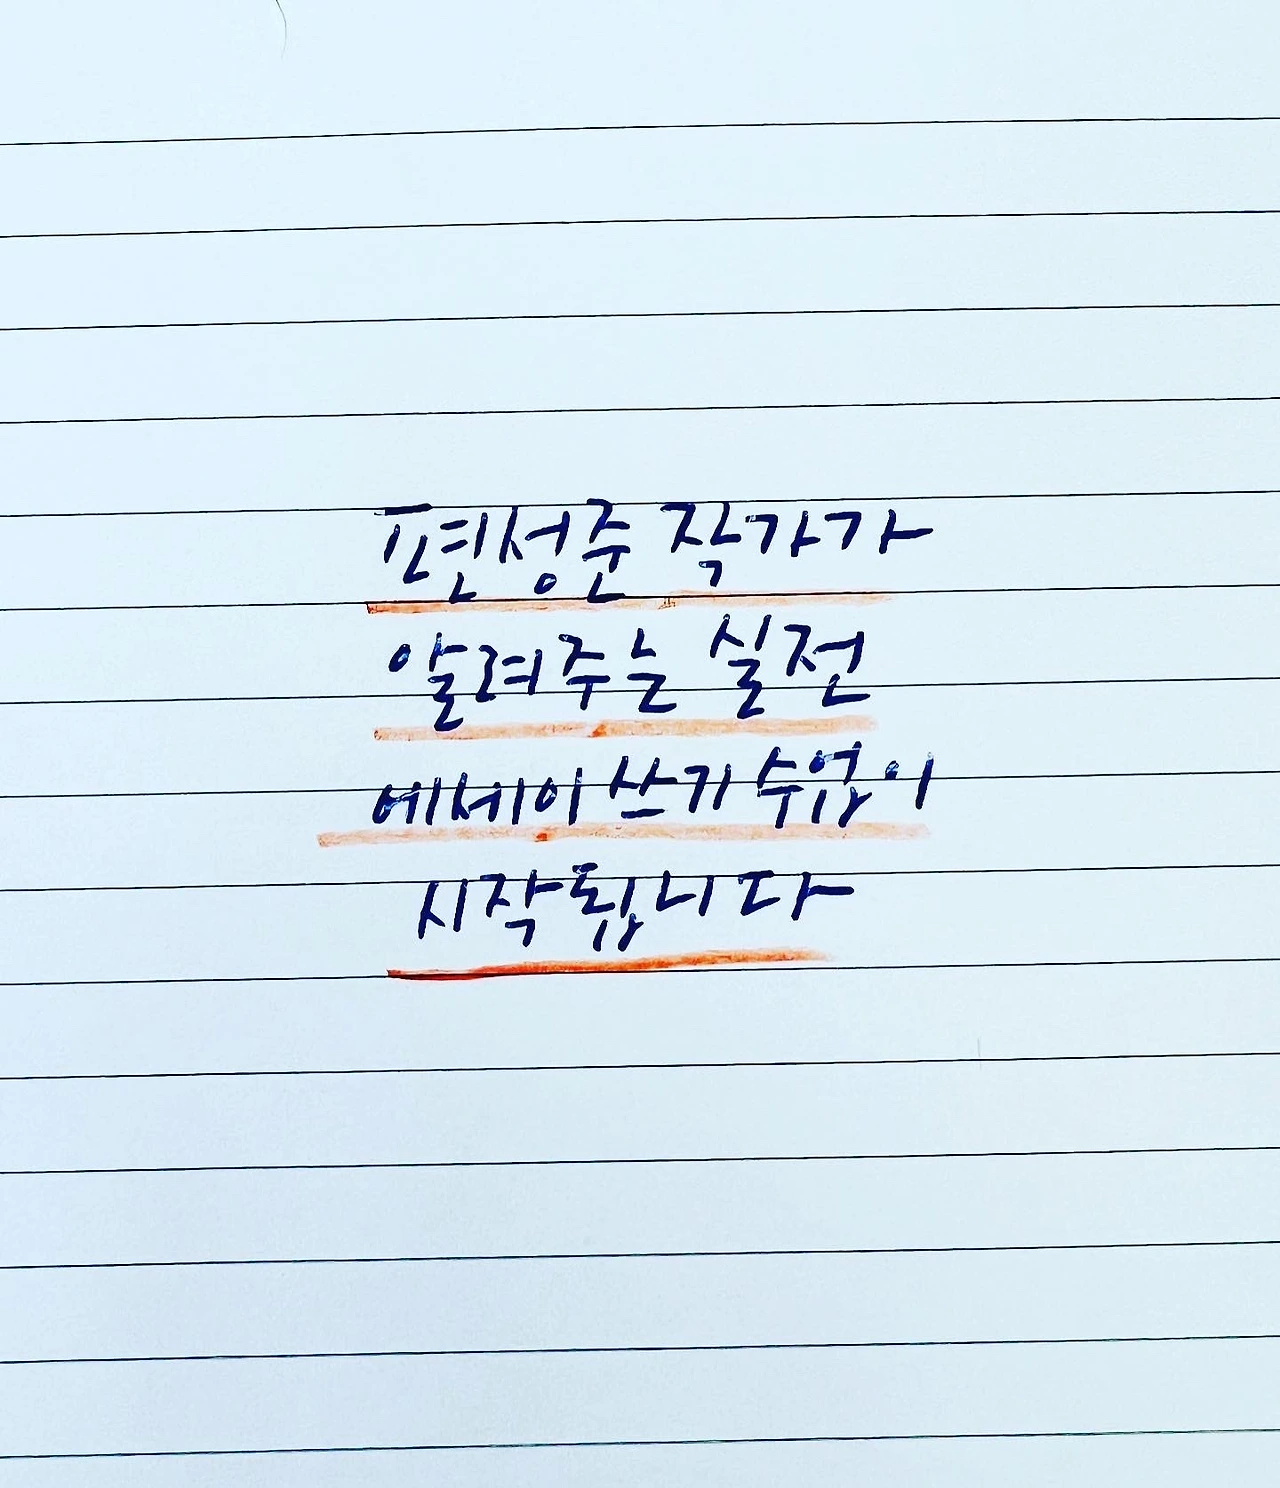 편성준 작가가
알려주는 실전
에세이 쓰기 수업이
시작됩니다